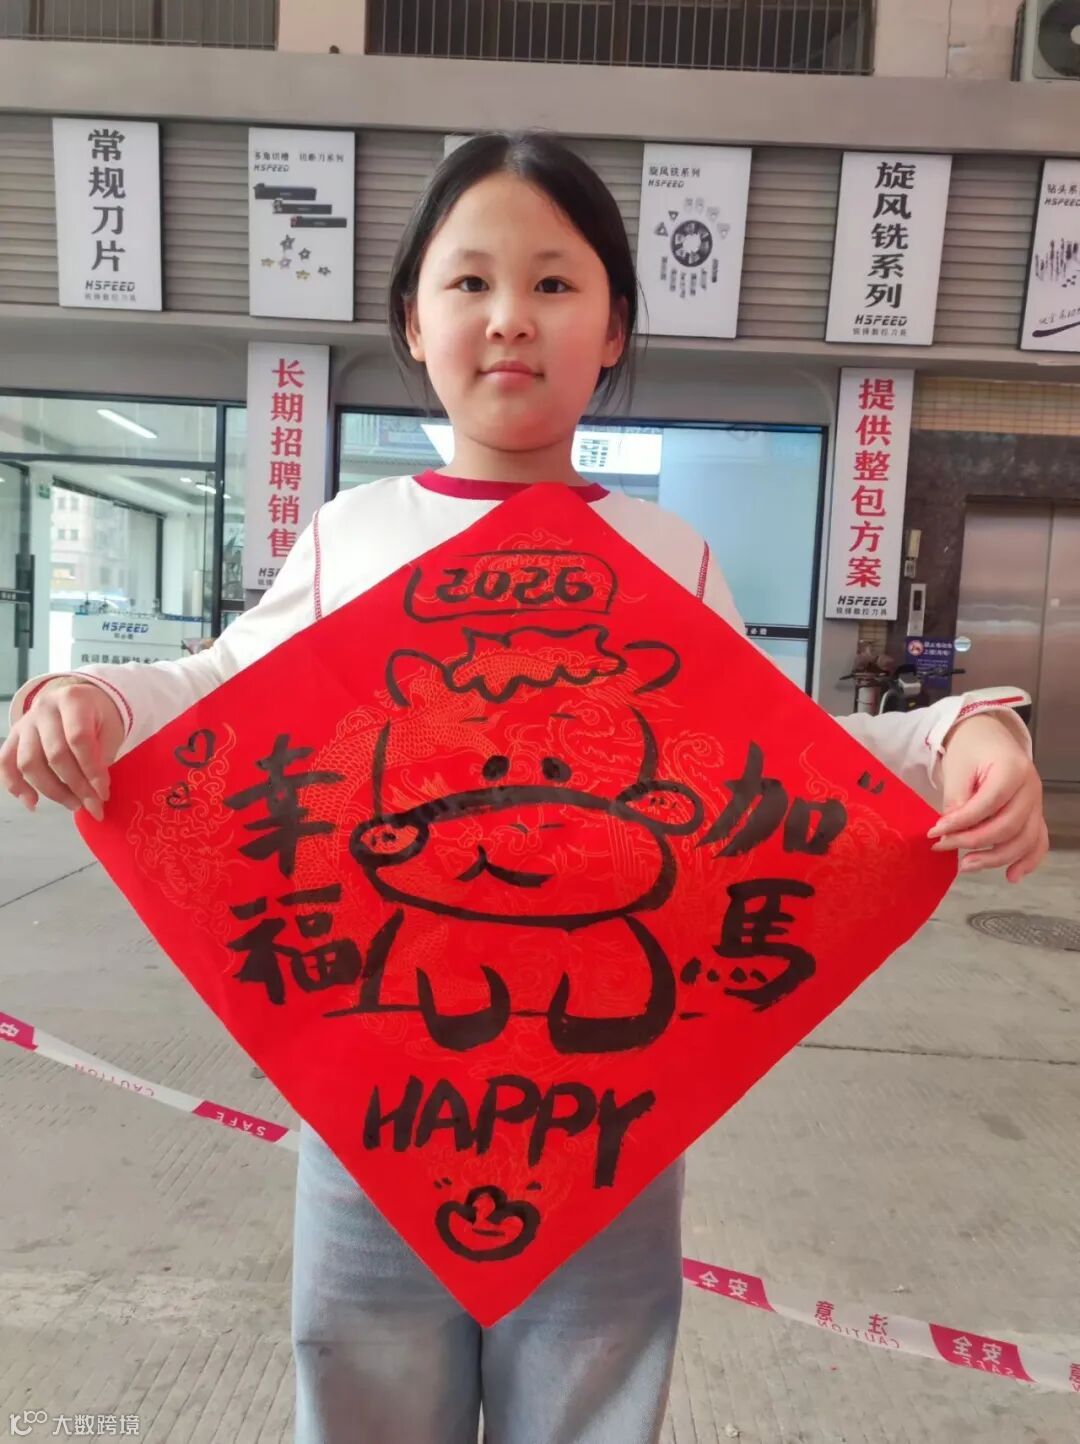 常规刀片
HSPEED
锐锋数控刀具
多角切槽 切断刀系列
HSPEED
旋风铣系列
HSPEED
旋风铣系列
HSPEED
锐锋数控刀具
钻头系
HSPE
长期招聘销售
HSPEED
提供整包方案
HSPEED
锐锋数控刀具
HSPEED
2026
幸福
加馬
HAPPY
CAUTION
SAFE
安全
注意
CAUTION
安全
SAFE
大数跨境